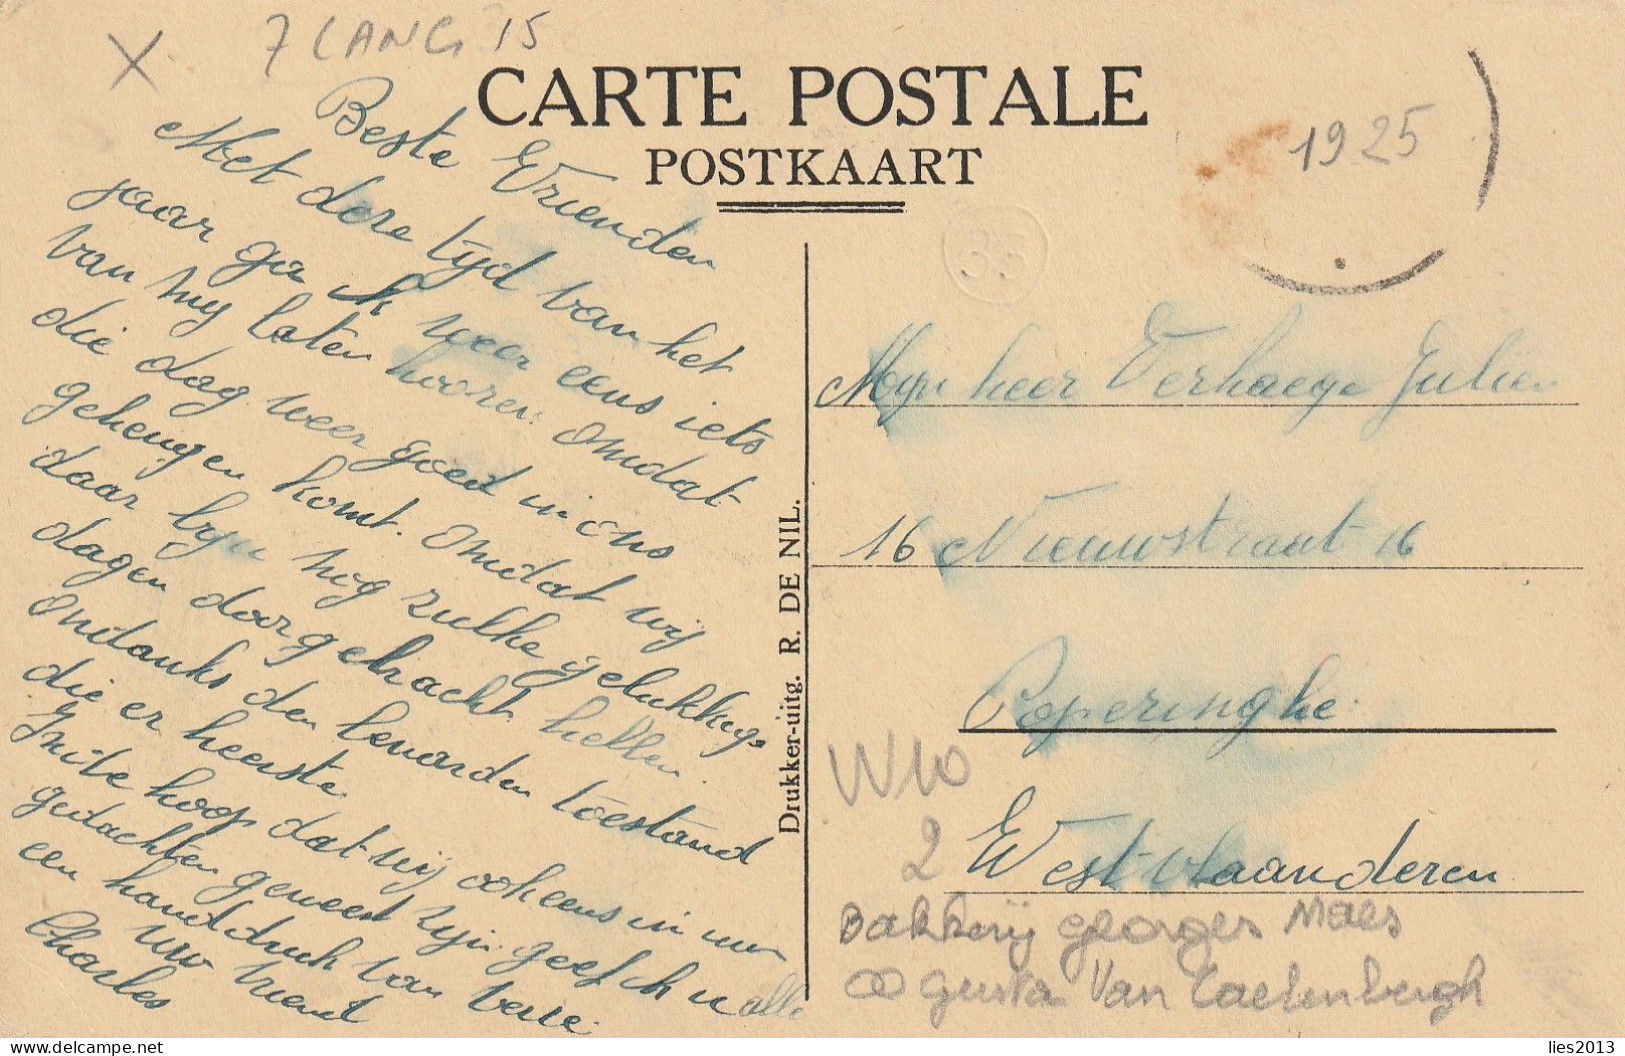 7 LANG 15
CARTE POSTALE
POSTKAART
1925
33
Beste Vrienden
Met dere tijd van het
jaar ga ik weer eens iets
van mij laten hooren omdat
die dag weer goed in ons
geheugen komt. Omdat wij
daar bij u nog zulke gelukkige
dagen doorgebracht hebben
ondanks den benarden toestand
die er heerste
Ik hoop dat wij ook eens in uw
gedachten geweest zijn geef ik u alle
een handdruk van verre
uw vriend
Charles
Drukker-uitg. R. DE NIL.
Mijnheer Verhaege Julien
16 Nieuwstraat 16
Poperinghe
West-vlaanderen
2
Bakkerij Georges Maes
Gusta Van
lies2013